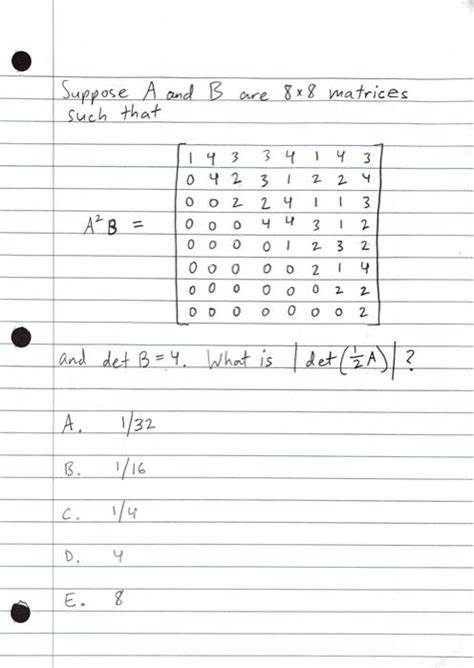 Suppose A and B are 8×8 matrices
such that
A²B =
1 4 3 3 4 1 4 3
0 4 2 3 1 2 2 4
0 0 2 2 4 1 1 3
0 0 0 4 4 3 1 2
0 0 0 0 1 2 3 2
0 0 0 0 0 2 1 4
0 0 0 0 0 0 2 2
0 0 0 0 0 0 0 2
and det B = 4. What is |det(½A)|?
A. 1/32
B. 1/16
C. 1/4
D. 4
E. 8